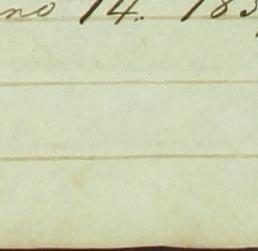 no 14. 183